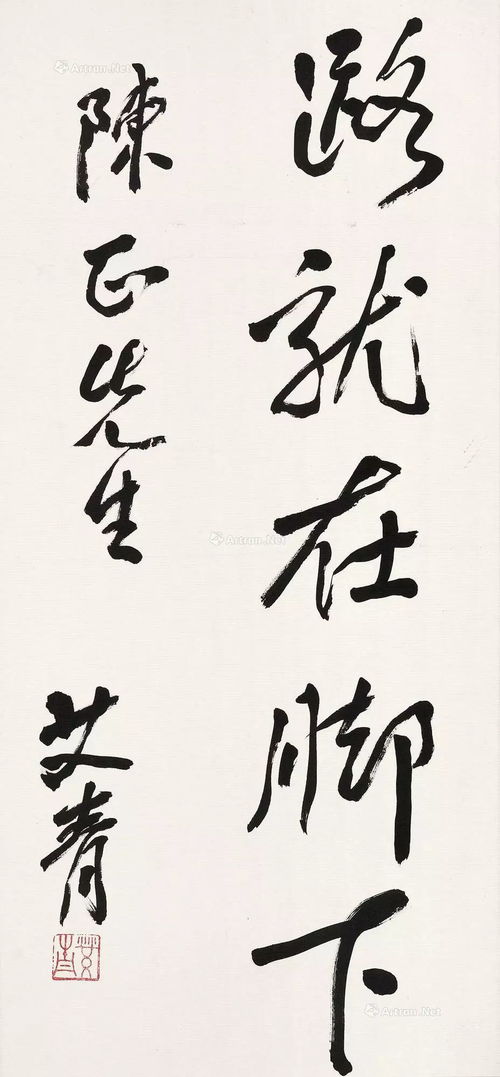 路就在脚下
陳正先生
艾青
艾青
Artron.Net
Artron.Net
Artron.Net